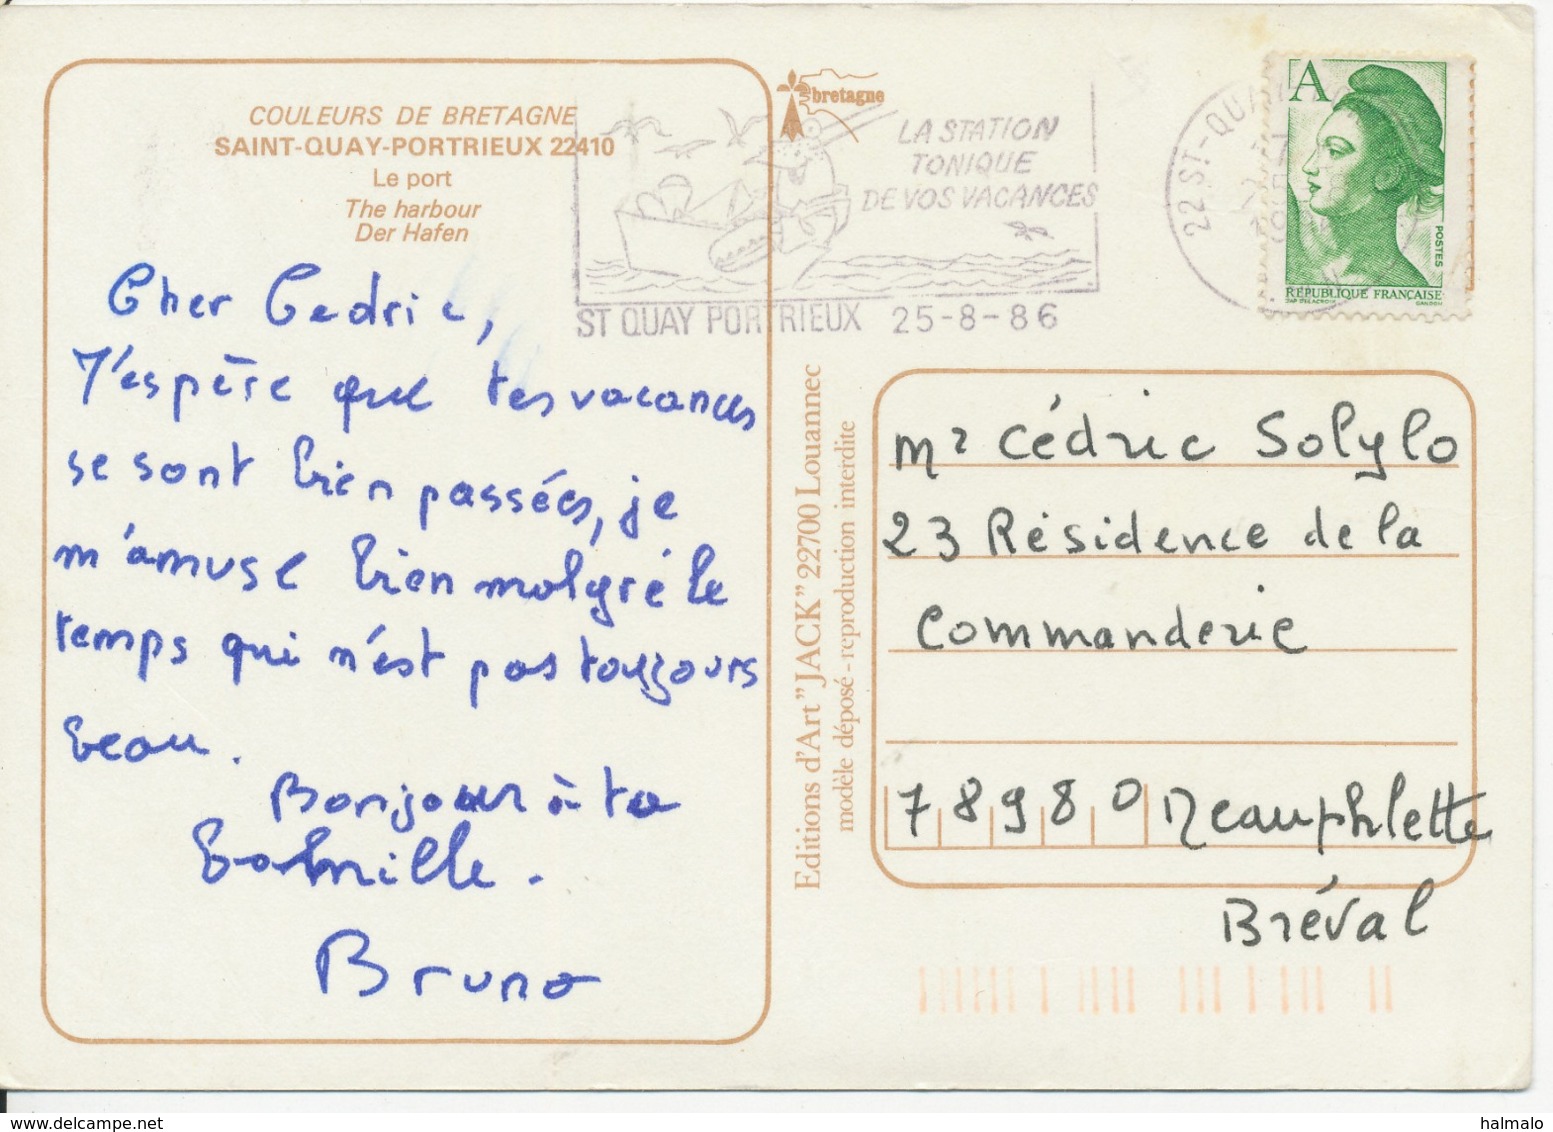 COULEURS DE BRETAGNE
SAINT-QUAY-PORTRIEUX 22410
Le port
The harbour
Der Hafen
Cher Cedric,
J'espère que tes vacances
se sont bien passées, je
m'amuse bien malgré le
temps qui n'est pas toujours
beau.
Bonjour à ta
famille.
Bruno
bretagne
LA STATION
TONIQUE
DE VOS VACANCES
ST QUAY PORTRIEUX 25-8-86
22 ST-QUAY
A
POSTES
RÉPUBLIQUE FRANÇAISE
DAP DELACROIX GANDON
Editions d'Art "JACK" 22700 Louannec
modèle déposé - reproduction interdite
Mr Cédric Solylo
23 Résidence de la
Commanderie
78980 Neauphlette
Bréval
delcampe.net
halmalo